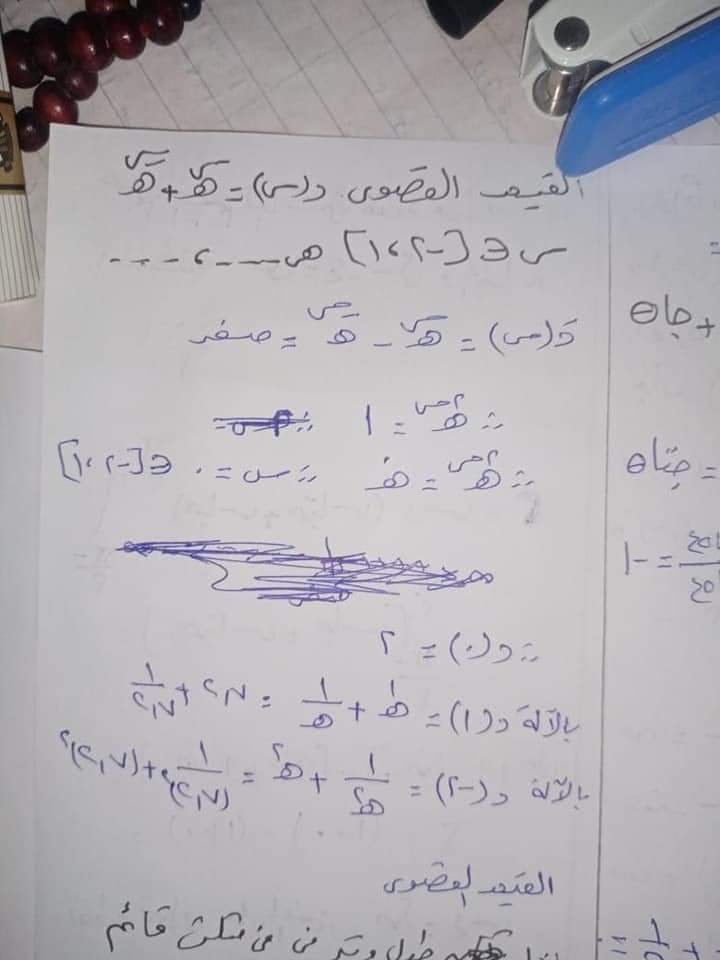 القيم القصوى د(س) = هـ^س + هـ^-س
س ∈ [-٢ ، ١] هى ---- ، ----
دَ(س) = هـ^س - هـ^-س = صفر
∴ هـ^٢س = ١
∴ هـ^٢س = هـ^٠ ∴ س = ٠ ∈ [-٢ ، ١]
∴ د(٠) = ٢
بالآلة د(١) = هـ^١ + ١/هـ = ٢,٧ + ١/٢,٧
بالآلة د(-٢) = ١/هـ^٢ + هـ^٢ = ١/(٢,٧)^٢ + (٢,٧)^٢
القيم القصوى
طول وتر فى مثلث قائم
+ جا θ
= جتا θ
= -١